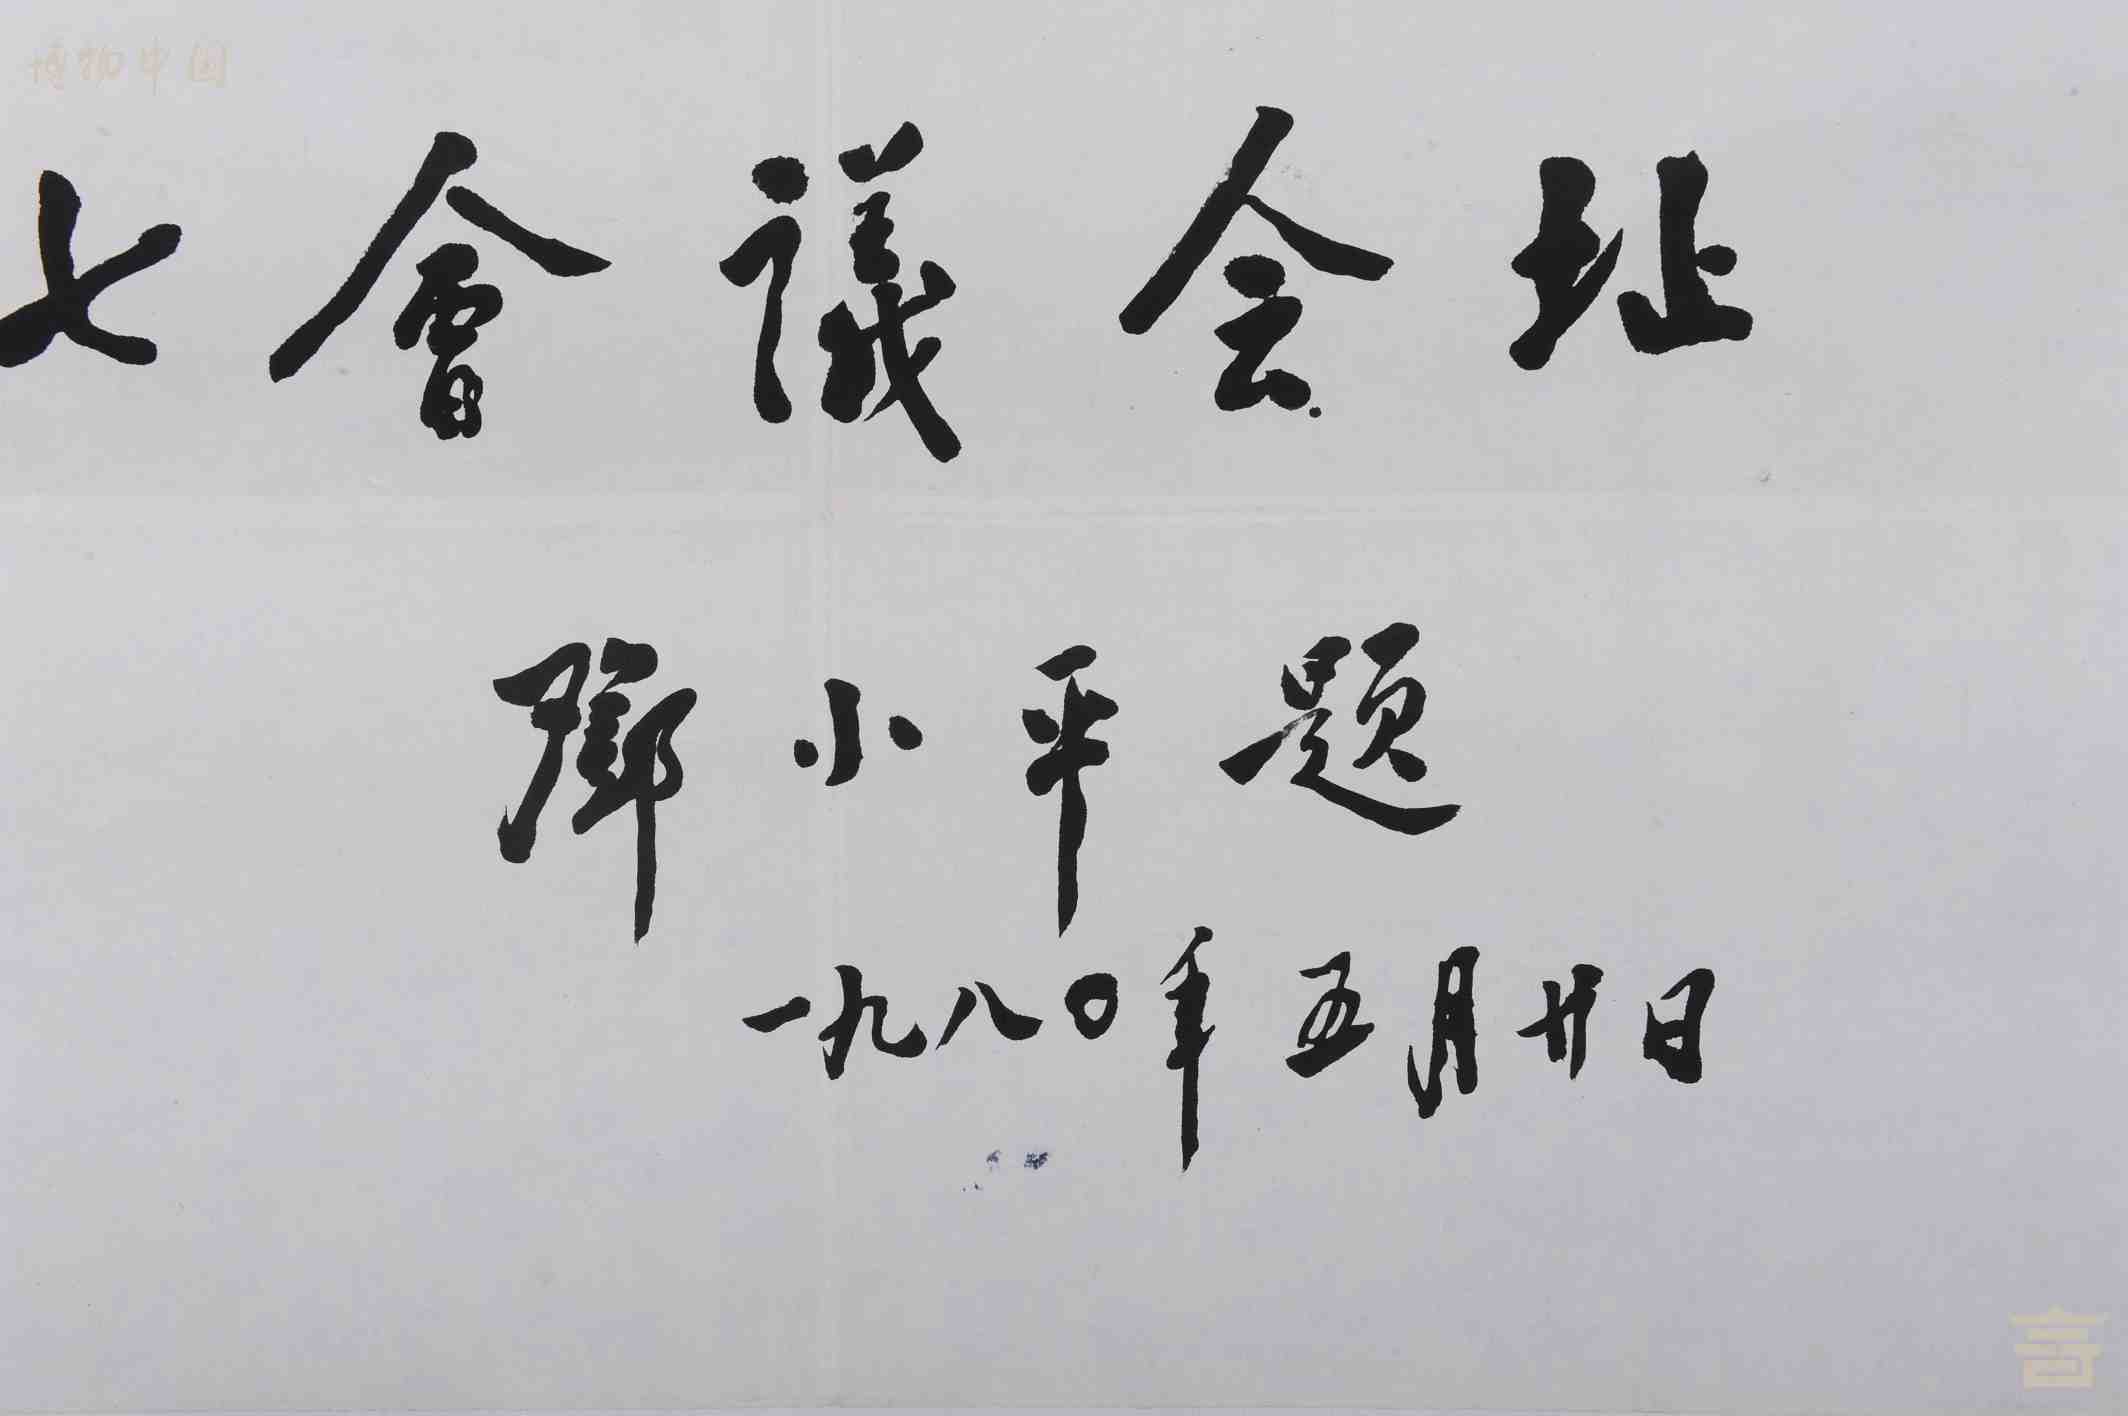 博物中国
七會議会址
鄧小平题
一九八〇年五月廿日